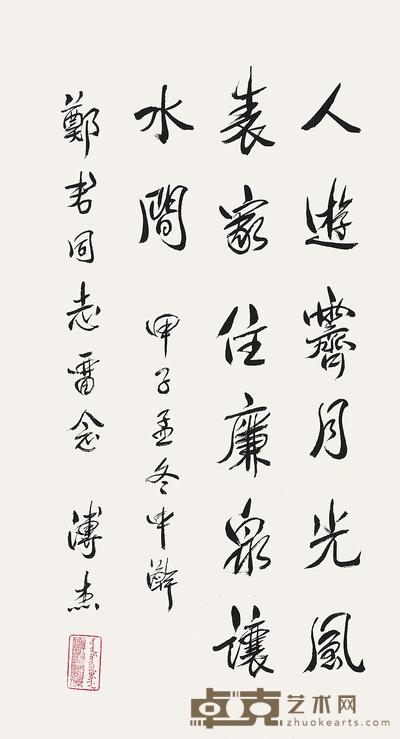 人遊霽月光風
表家住廉泉讓
水間 甲子孟冬中澣
鄭君同志畱念 溥杰
卓克艺术网
zhuokearts.com